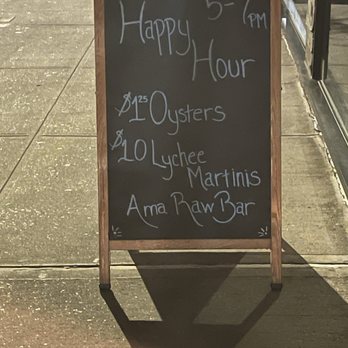 5-7PM
Happy
Hour
$1.25 Oysters
$10 Lychee
Martinis
Ama Raw Bar